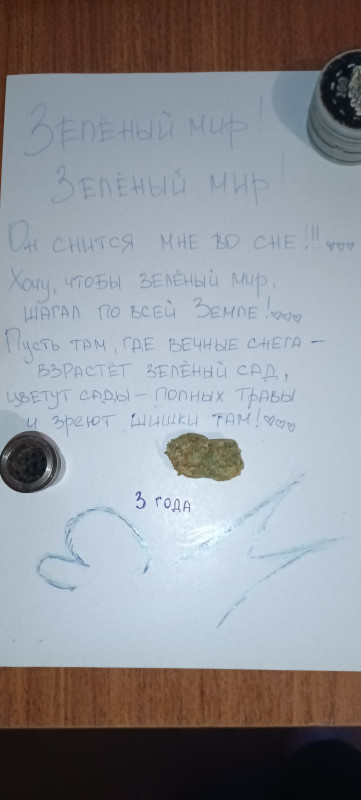 Зелёный мир!
Зелёный мир!
Он снится мне во сне!!!
Хочу, чтобы зелёный мир,
шагал по всей Земле!
Пусть там, где вечные снега –
взрастёт зелёный сад,
цветут сады – полных травы
и зреют шишки там!
3 года
100